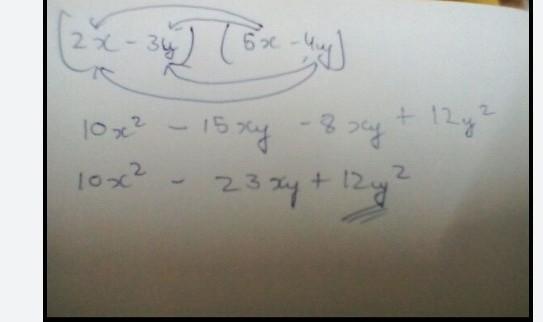 (2x - 3y) (5x - 4y)
10x² - 15xy - 8xy + 12y²
10x² - 23xy + 12y²